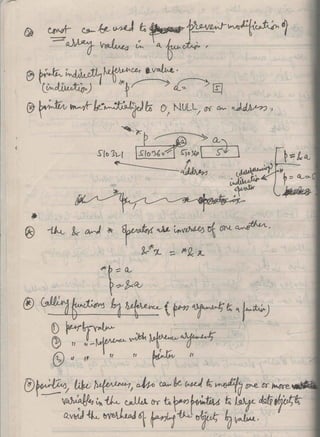 const can be used to prevent modification of
array values in a function.
pointer indirectly references a value.
(indirection) *p a 5
pointer must be initialized to 0, NULL, or an address,
*p a
510321 510360 510360 5
address
indirection
operator
p = &a
the & and * operators are inverses of one another.
&*x = *&x
*p = a
p = &a
Calling functions by reference (pass arguments to a function)
① pass by value
② " " reference with reference arguments
③ " " " " pointer "
pointers, like references, also can be used to modify one or more
variables in the caller or to pass pointers to large data objects to
avoid the overhead of passing the objects by value.